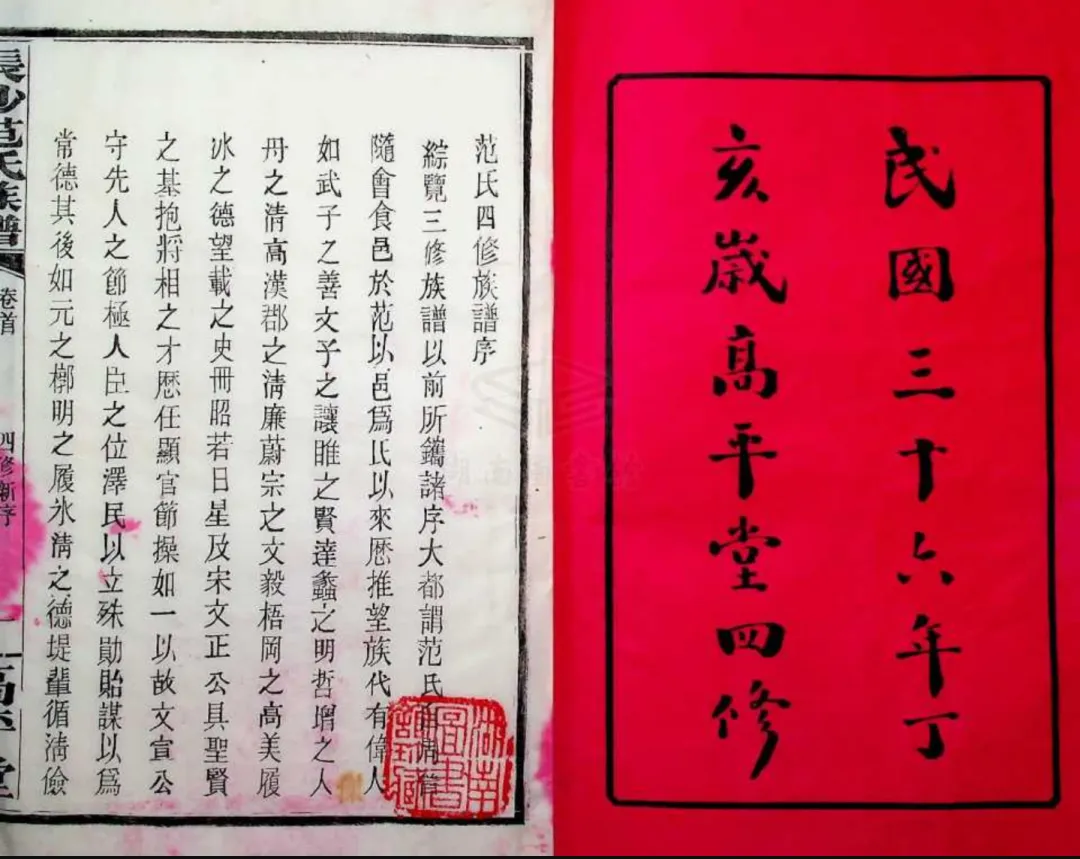 民國三十六年丁
亥歲高平堂四修
范氏四修族譜序
綜覽三修族譜以前所鐫諸序大都謂范氏自周晉
隨會食邑於范以邑爲氏以來歷推望族代有偉人
如武子之善文子之讓睢之賢達蠡之明哲增之人
丹之清高漢郡之清廉蔚宗之文毅梧岡之高美履
冰之德望載之史冊昭若日星及宋文正公具聖賢
之基抱將相之才歷任顯官節操如一以故文宣公
守先人之節極人臣之位澤民以立殊勛貽謀以爲
常德其後如元之槨明之履冰清之德堤輩循淸儉
長沙范氏族譜
卷首
四修新序
高平堂
湖南圖書館藏